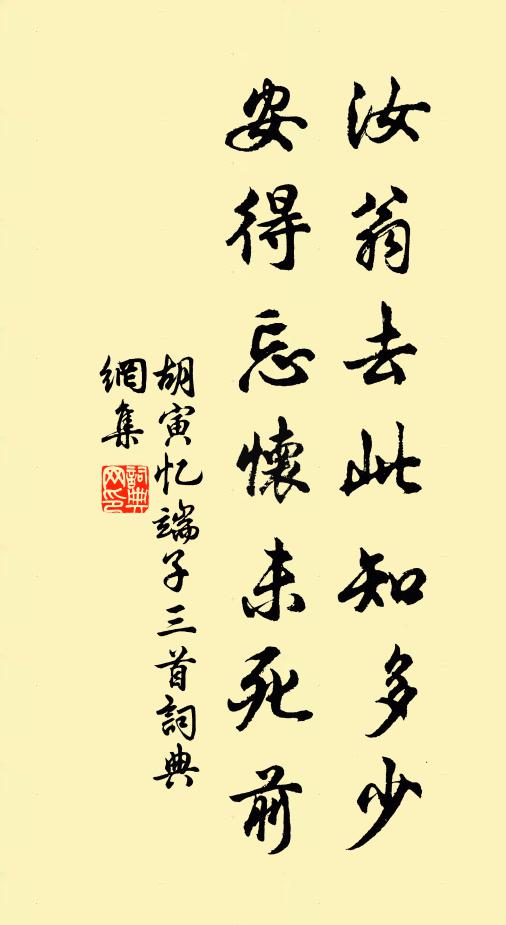 汝翁去此知多少
安得忘懷未死前
胡寅忆端子三首詞典
網集
詞典
网印